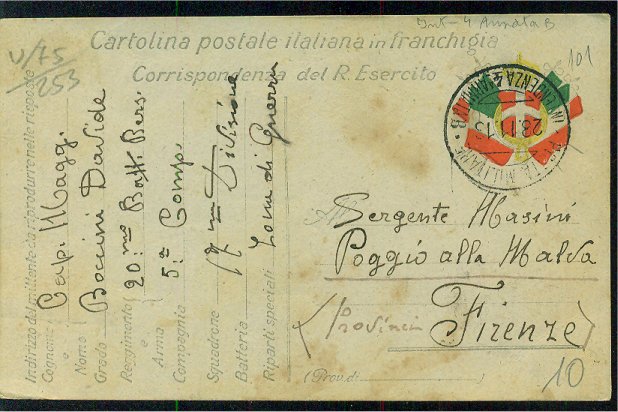 Int-4 Annata B
V/75
253
101
Cartolina postale italiana in franchigia
Corrispondenza del R. Esercito
Indirizzo del mittente da riprodurre nelle risposte
Cognome Cap. Magg.
e
Nome
Grado Bocini Davide
Reggimento 20:mo Batt. Bers.
o
Arma
Compagnia 5:a Comp.
Squadrone 17 ma Divisione
Batteria
Riparti speciali Zona di Guerra
POSTA MILITARE
INTENDENZA 4 ARMATA B
23.11.15
A Sergente Masini
Poggio alla Malva
(Provincia Firenze)
(Prov. di
10